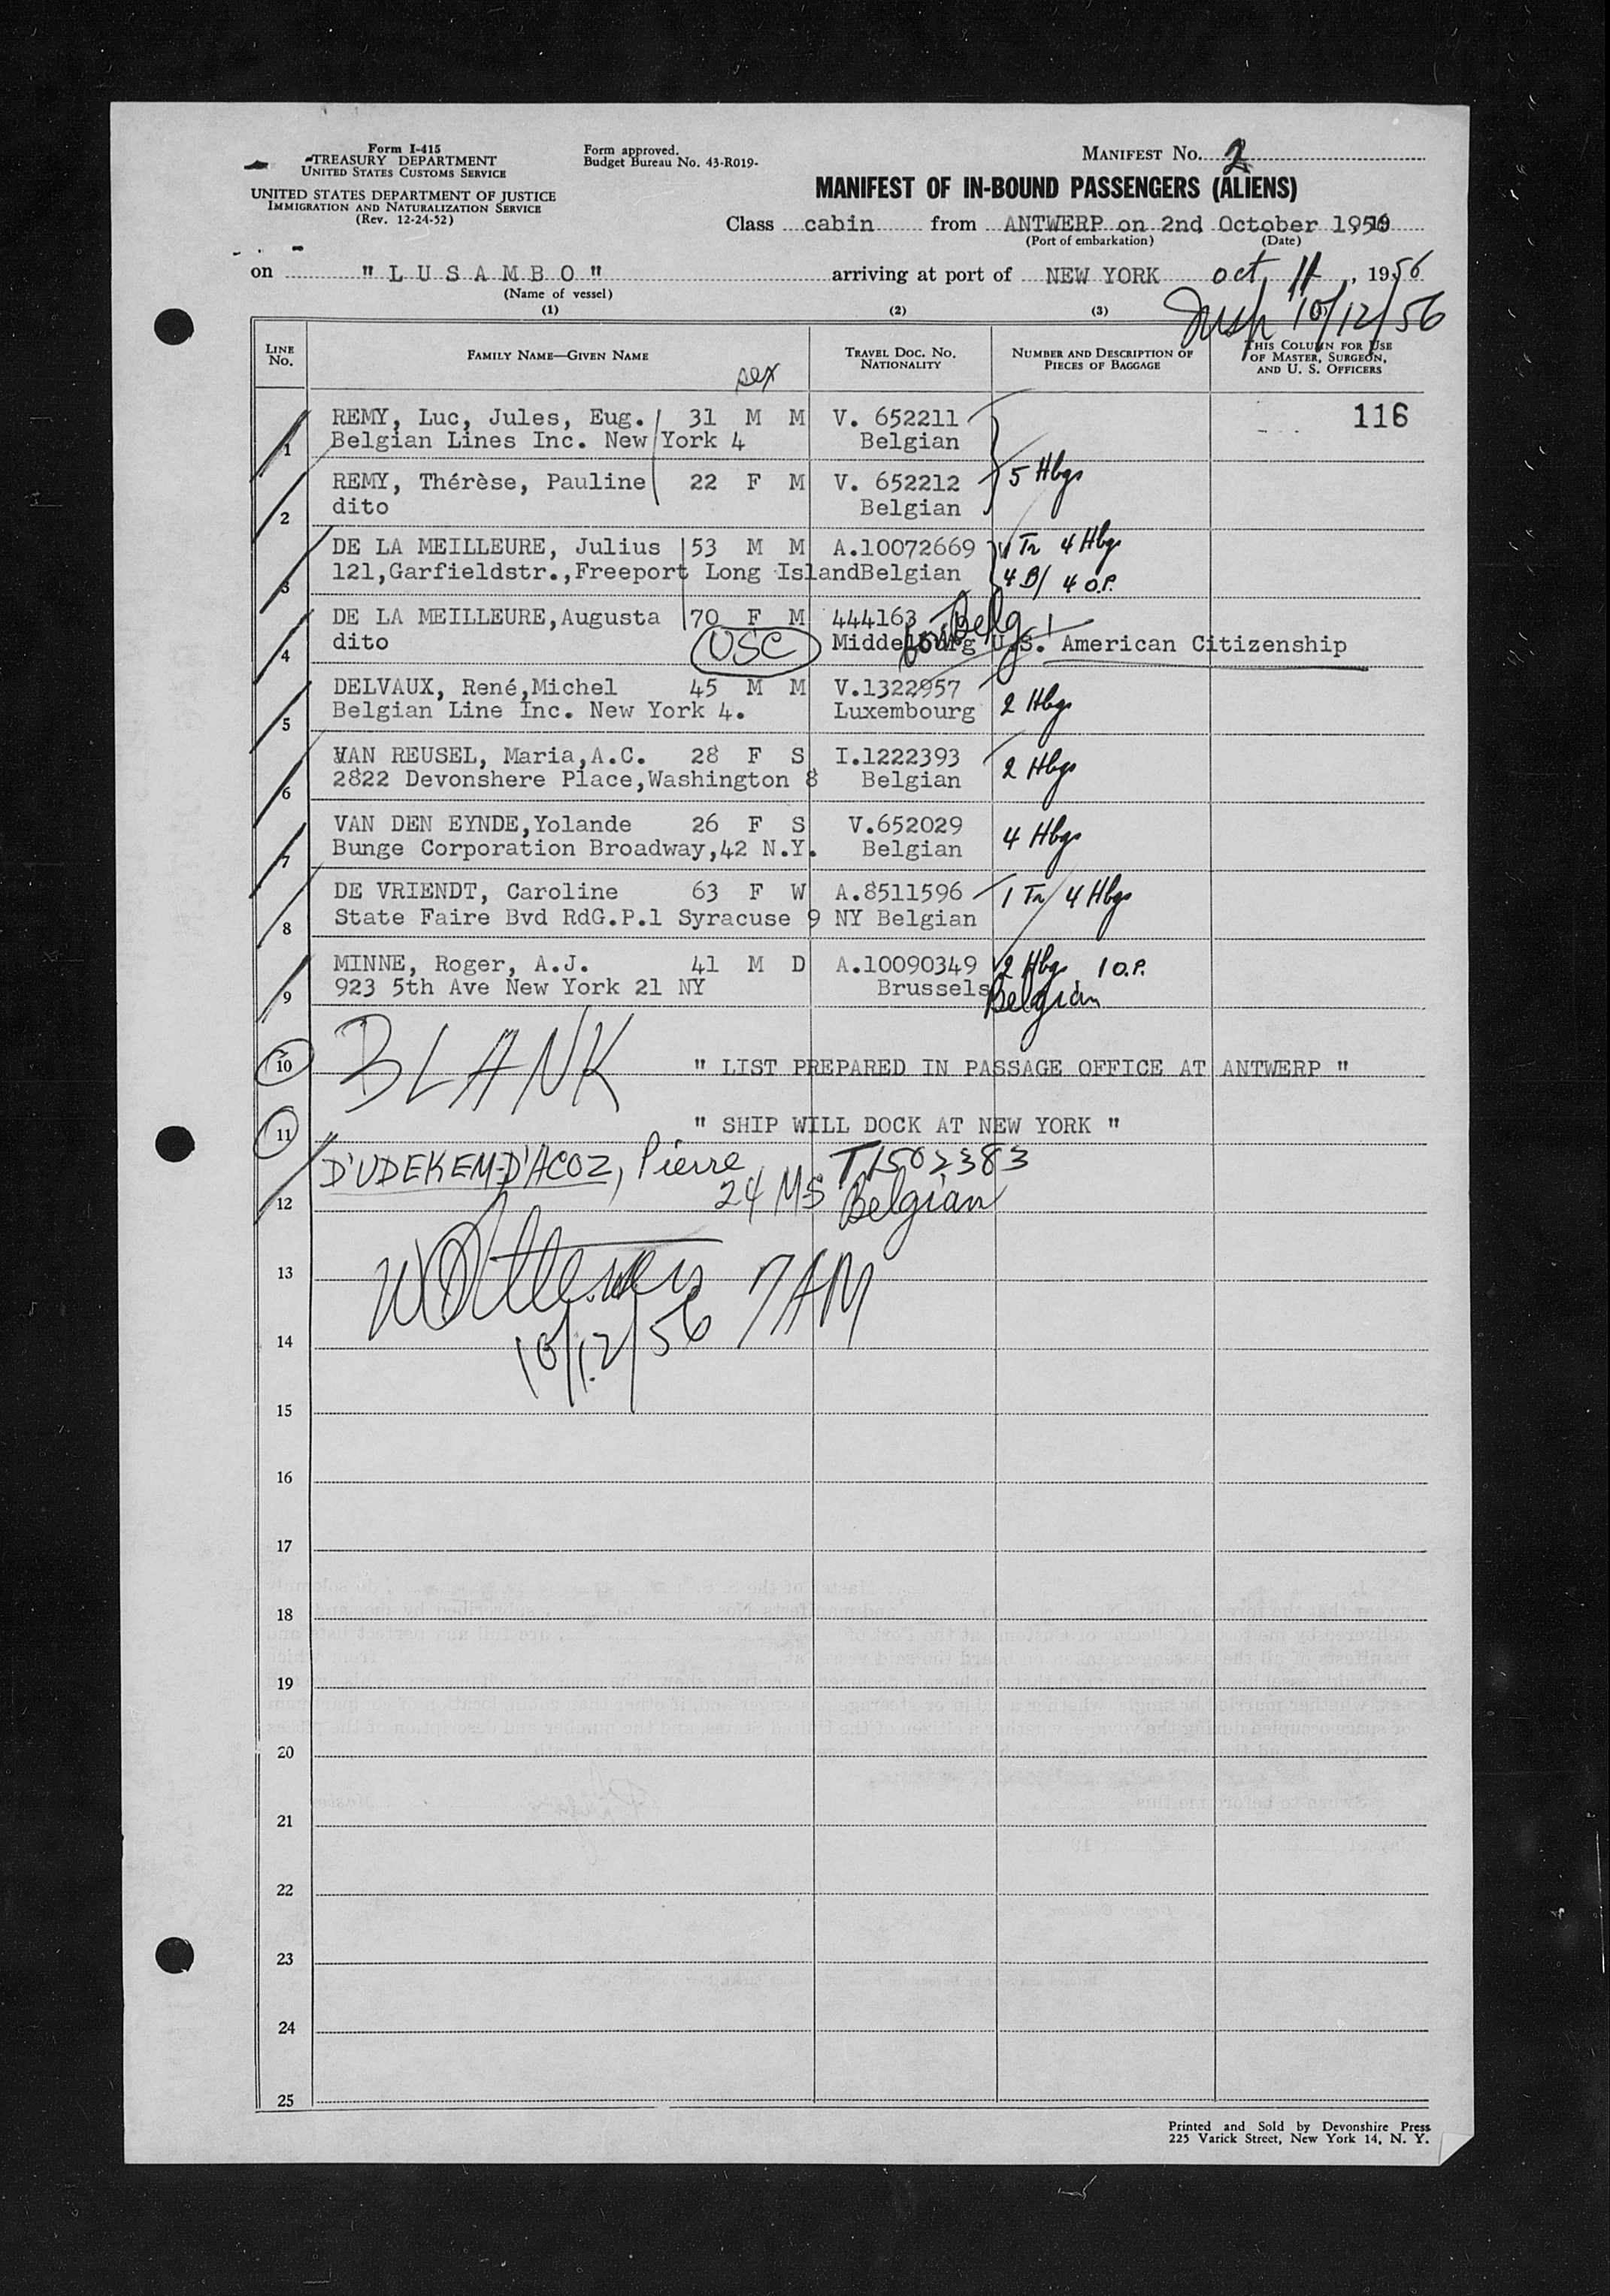 Form I-415
TREASURY DEPARTMENT
UNITED STATES CUSTOMS SERVICE
UNITED STATES DEPARTMENT OF JUSTICE
IMMIGRATION AND NATURALIZATION SERVICE
(Rev. 12-24-52)
Form approved.
Budget Bureau No. 43-R019-
MANIFEST NO. 2
MANIFEST OF IN-BOUND PASSENGERS (ALIENS)
Class cabin from ANTWERP on 2nd October 1956
(Port of embarkation) (Date)
on "LUSAMBO" arriving at port of NEW YORK Oct. 11, 1956
(Name of vessel)
10/12/56
(1) (2) (3)
LINE NO. FAMILY NAME—GIVEN NAME sex TRAVEL DOC. NO. NATIONALITY NUMBER AND DESCRIPTION OF PIECES OF BAGGAGE THIS COLUMN FOR USE OF MASTER, SURGEON, AND U. S. OFFICERS
REMY, Luc, Jules, Eug. 31 M M V. 652211 116
1 Belgian Lines Inc. New York 4 Belgian
REMY, Thérèse, Pauline 22 F M V. 652212 5 Hbgs
2 dito Belgian
DE LA MEILLEURE, Julius 53 M M A.10072669 1 Tr 4 Hbgs
3 121,Garfieldstr.,Freeport Long Island Belgian 4 B/ 4 O.P.
DE LA MEILLEURE,Augusta 70 F M 444163 Belg
4 dito USC Middelbourg U.S. American Citizenship
DELVAUX, René,Michel 45 M M V.1322957
5 Belgian Line Inc. New York 4. Luxembourg 2 Hbgs
VAN REUSEL, Maria,A.C. 28 F S I.1222393 2 Hbgs
6 2822 Devonshere Place,Washington 8 Belgian
VAN DEN EYNDE,Yolande 26 F S V.652029 4 Hbgs
7 Bunge Corporation Broadway,42 N.Y. Belgian
DE VRIENDT, Caroline 63 F W A.8511596 1 Tr 4 Hbgs
8 State Faire Bvd RdG.P.1 Syracuse 9 NY Belgian
MINNE, Roger, A.J. 41 M D A.10090349 2 Hbgs 1 O.P.
9 923 5th Ave New York 21 NY Brussels Belgian
10 BLANK " LIST PREPARED IN PASSAGE OFFICE AT ANTWERP "
11 " SHIP WILL DOCK AT NEW YORK "
D'UDEKEM-D'ACOZ, Pierre T1502383
12 24 M S Belgian
13 7AM
14 10/12/56
15
16
17
18
19
20
21
22
23
24
25
Printed and Sold by Devonshire Press
225 Varick Street, New York 14, N. Y.